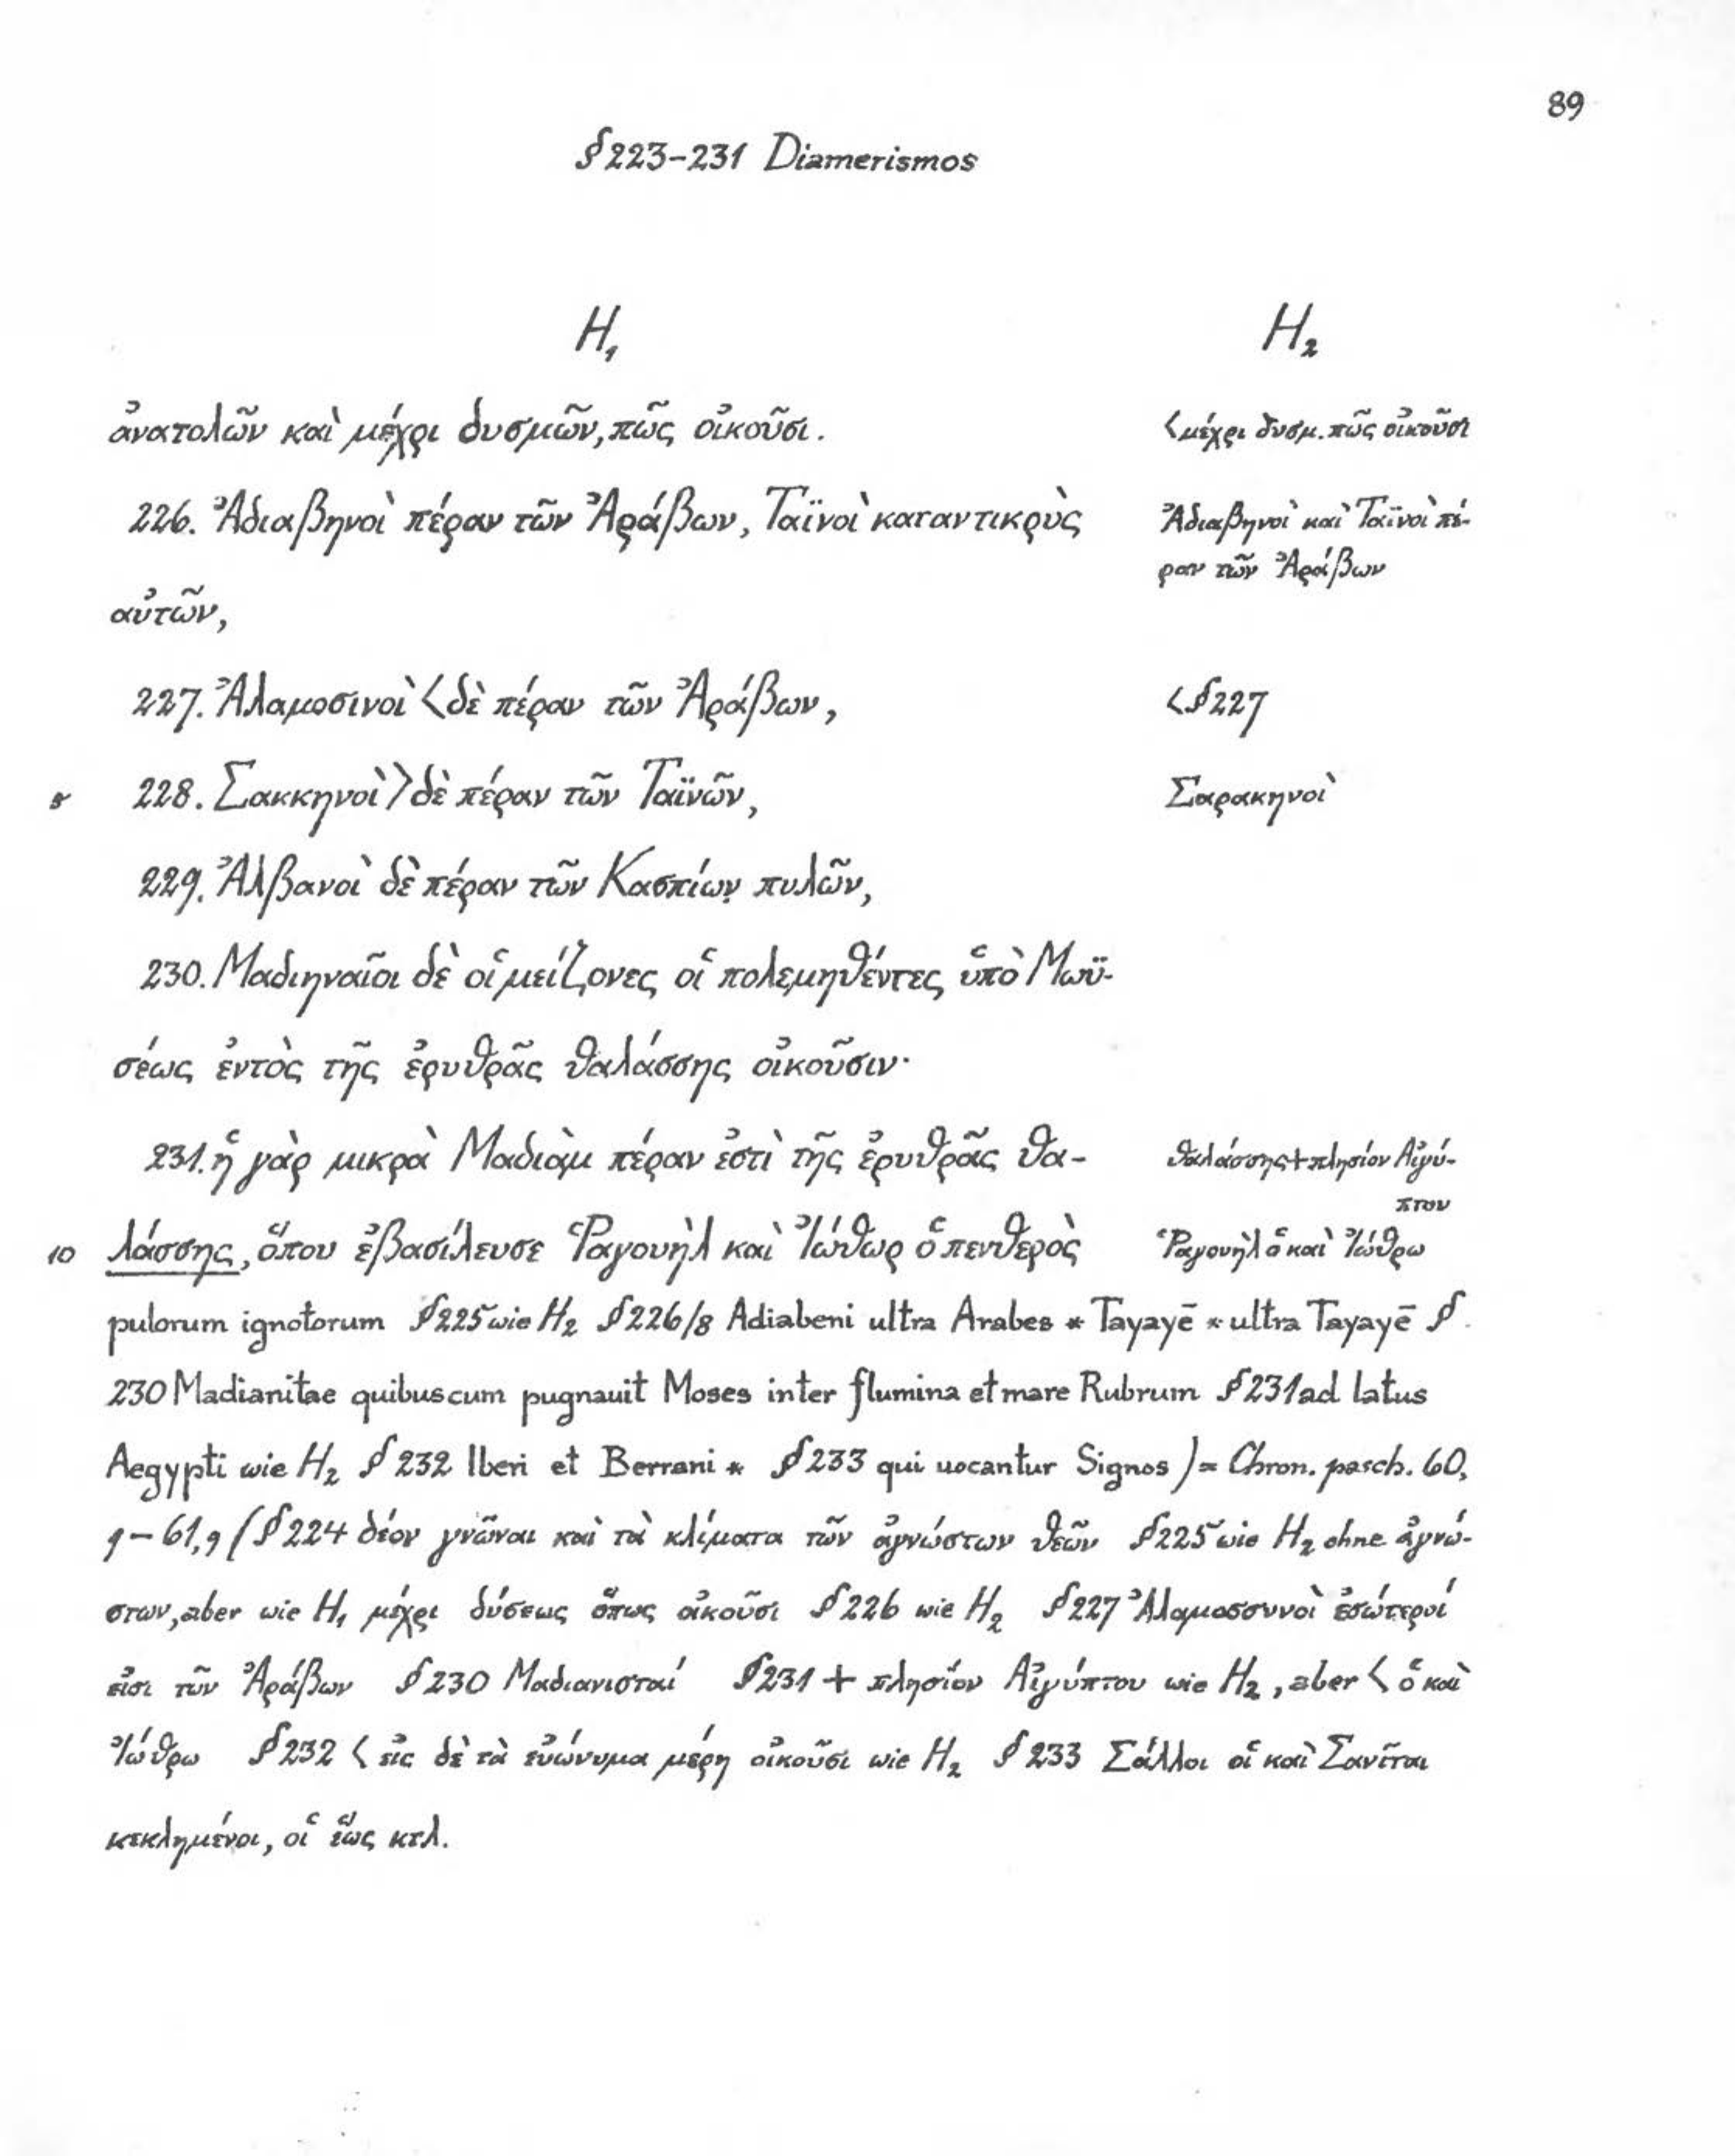 89
§ 223-231 Diamerismos
H₁
H₂
ἀνατολῶν καὶ μέχρι δυσμῶν, πῶς οἰκοῦσι.
< μέχρι δυσμ. πῶς οἰκοῦσι
226. Ἀδιαβηνοὶ πέραν τῶν Ἀράβων, Ταϊνοὶ καταντικρὺς
Ἀδιαβηνοὶ καὶ Ταϊνοὶ πέ-
ραν τῶν Ἀράβων
αὐτῶν,
227. Ἀλαμοσινοὶ <δὲ πέραν τῶν Ἀράβων,
< § 227
5
228. Σακκηνοὶ> δὲ πέραν τῶν Ταϊνῶν,
Σαρακηνοὶ
229. Ἀλβανοὶ δὲ πέραν τῶν Κασπίων πυλῶν,
230. Μαδιηναῖοι δὲ οἱ μείζονες οἱ πολεμηθέντες ὑπὸ Μωϋ-
σέως ἐντὸς τῆς ἐρυθρᾶς θαλάσσης οἰκοῦσιν·
231. ἡ γὰρ μικρὰ Μαδιὰμ πέραν ἐστὶ τῆς ἐρυθρᾶς θα-
θαλάσσης + πλησίον Αἰγύ-
πτου
10
λάσσης, ὅπου ἐβασίλευσε Ῥαγουὴλ καὶ Ἰώθωρ ὁ πενθερὸς
Ῥαγουὴλ ὁ καὶ Ἰώθρω
pulorum ignotorum § 225 wie H₂ § 226/8 Adiabeni ultra Arabes * Tayayē * ultra Tayayē §
230 Madianitae quibuscum pugnauit Moses inter flumina et mare Rubrum § 231 ad latus
Aegypti wie H₂ § 232 Iberi et Berrani * § 233 qui uocantur Signos ) = Chron. pasch. 60,
9 – 61, 9 (§ 224 δέον γνῶναι καὶ τὰ κλίματα τῶν ἀγνώστων θεῶν § 225 wie H₂ ohne ἀγνώ-
στων, aber wie H₁ μέχρι δύσεως ὅπως οἰκοῦσι § 226 wie H₂ § 227 Ἀλαμοσσυνοὶ ἐσώτεροί
εἰσι τῶν Ἀράβων § 230 Μαδιανισταί § 231 + πλησίον Αἰγύπτου wie H₂, aber < ὁ καὶ
Ἰώθρω § 232 < εἰς δὲ τὰ εὐώνυμα μέρη οἰκοῦσι wie H₂ § 233 Σάλλοι οἱ καὶ Σανῖται
κεκλημένοι, οἱ ἕως κτλ.